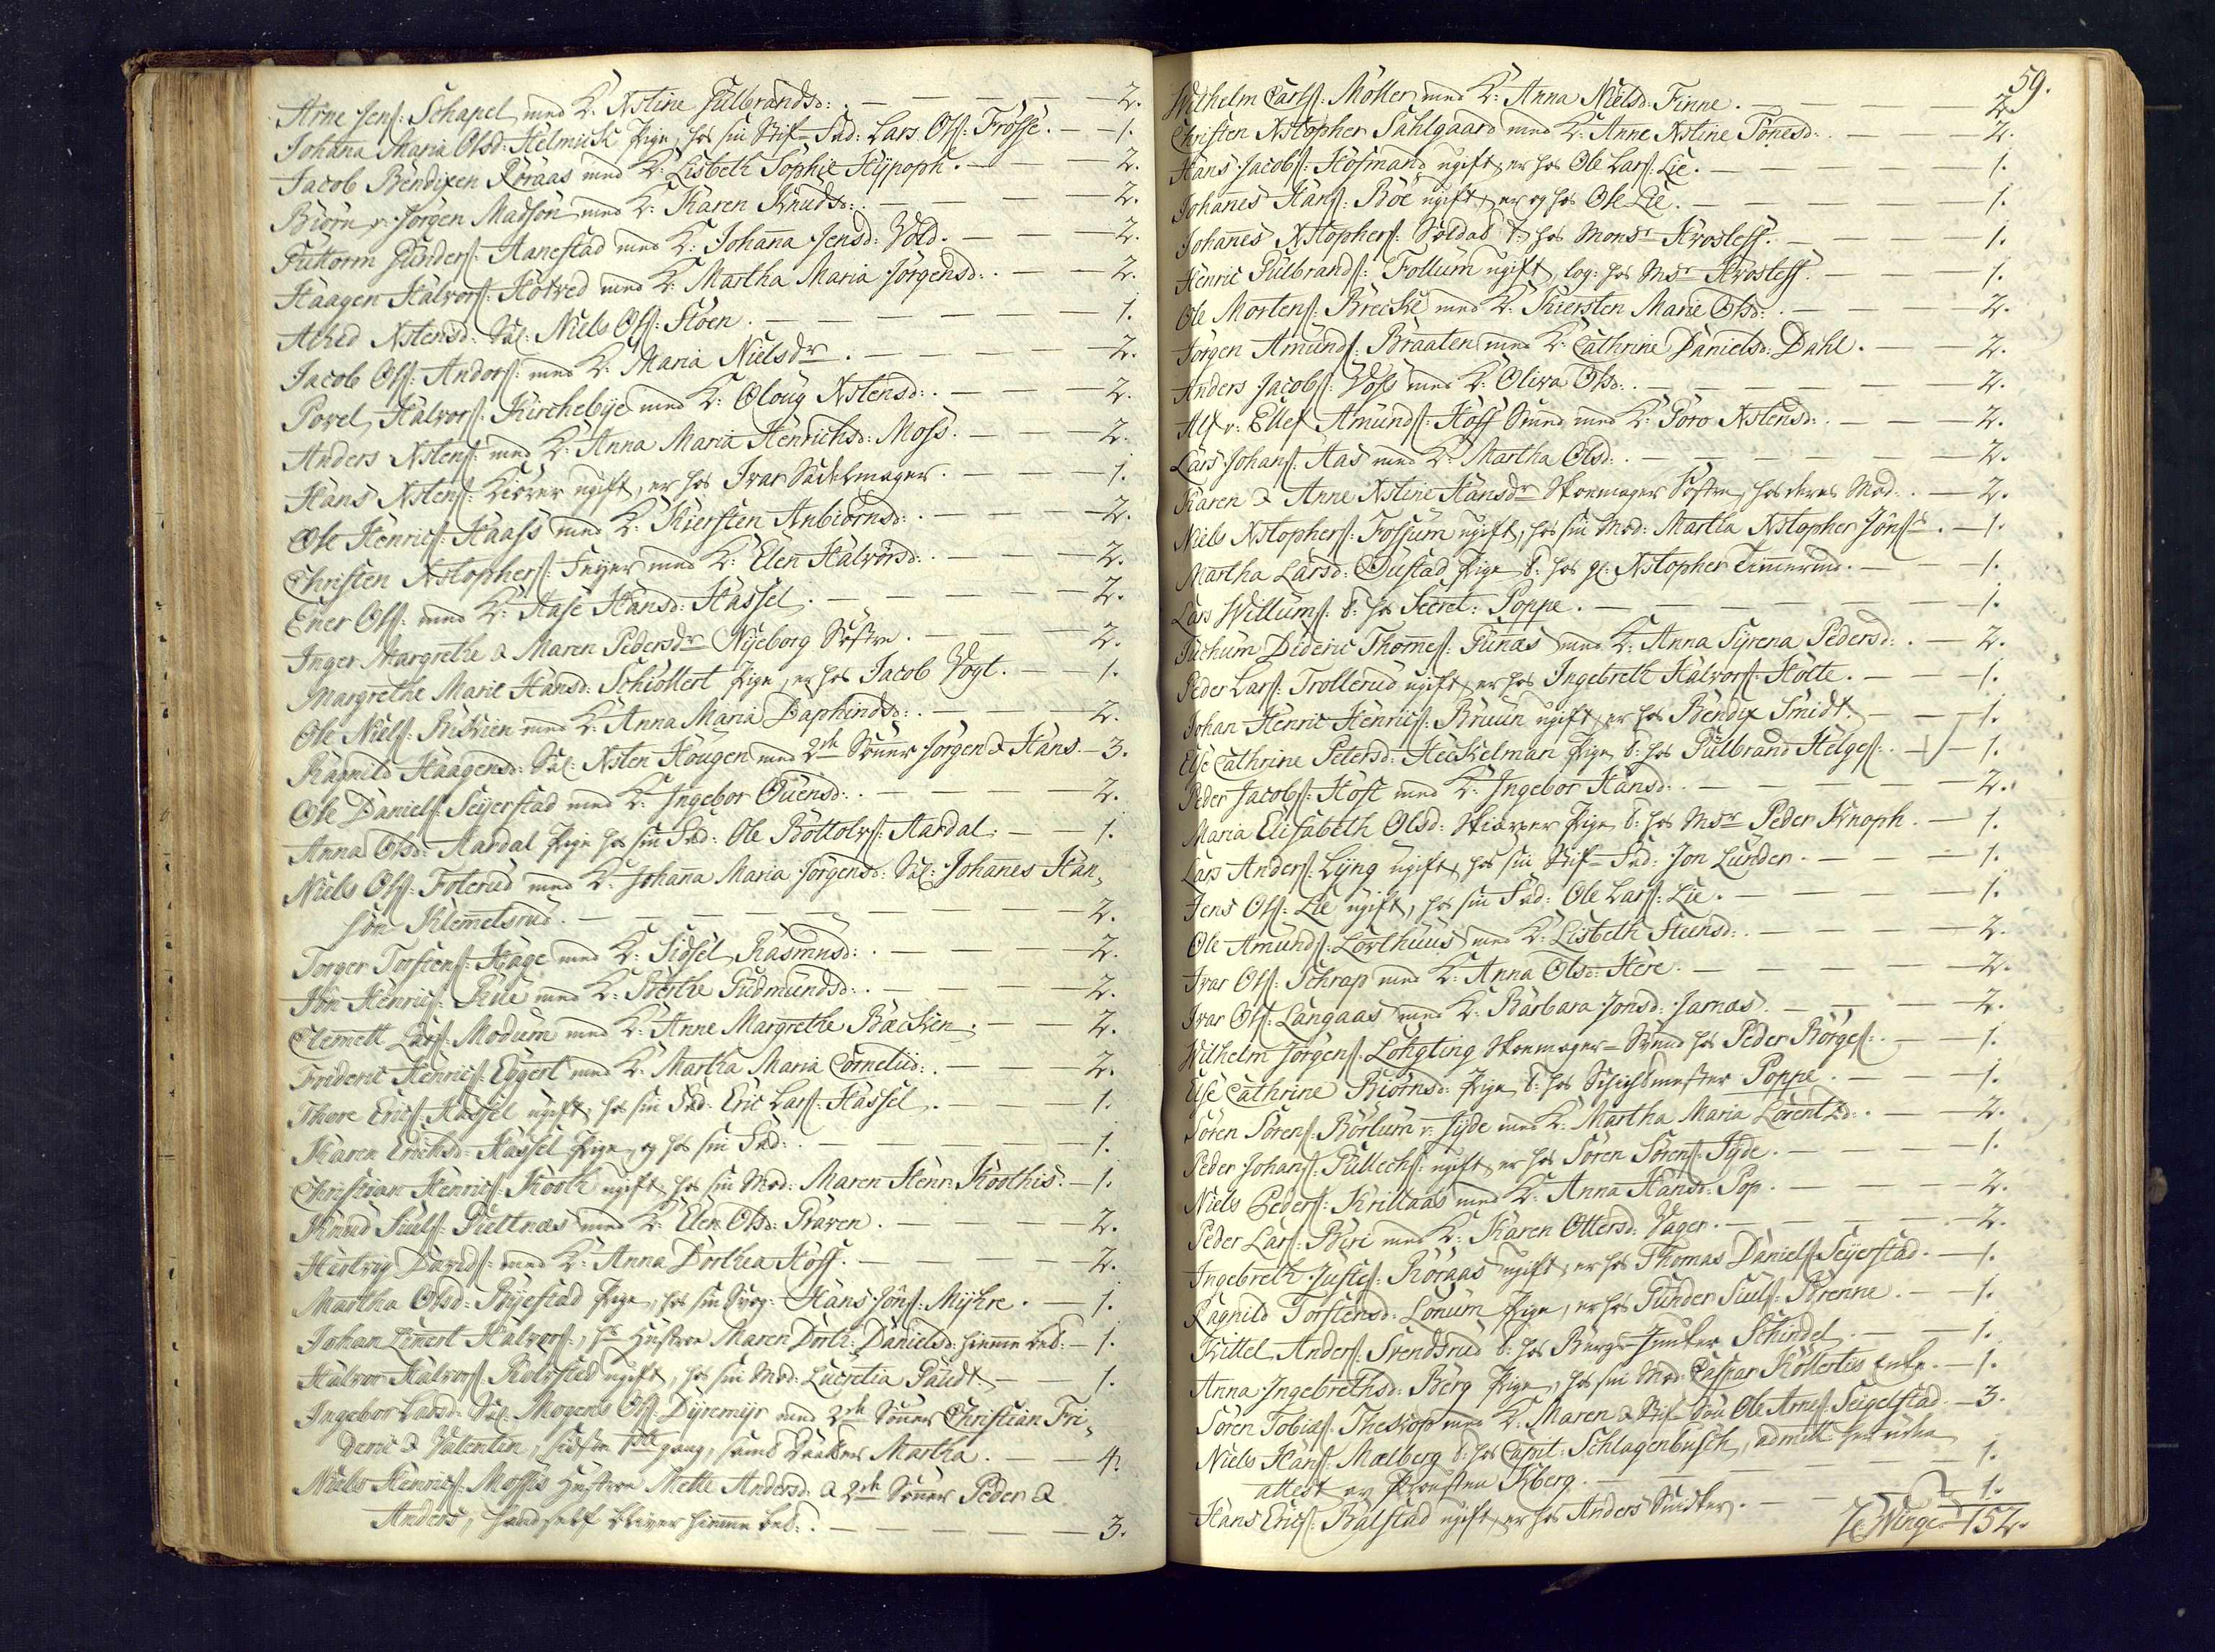 Arne Jens: Schapel med K: Xstine Gulbrandsd: — 2.
Johana Maria Olsd: Helmich Pige, hos sin Stif-Fad: Lars Ols: Frösse. — 1.
Jacob Bendixen Röraas med K: Lisbeth Sophie Hypoph. — 2.
Biörn v: Jörgen Madsön med K: Karen Knudsd: — 2.
Guttorm Gunders: Aanestad med K: Johana Jensd: Vold. — 2.
Haagen Halvors: Hotved med K: Martha Maria Jörgensd: — 2.
Alhed Xstensd: Sal: Niels Ols: Floen. — 1.
Jacob Ols: Andors: med K: Maria Nielsdr. — 2.
Povel Halvors: Kirchebye med K: Oloug Xstensd: — 2.
Anders Xstens: med K: Anna Maria Henrichsd: Moss. — 2.
Hans Xstens: Kiörer ugift, er hos Ivar Sadelmager. — 1.
Ole Henrics: Haass med K: Kiersten Anbiörnsd: — 2.
Christen Xstophers: Feyer med K: Elen Halvorsd: — 2.
Ener Ols: med K: Aase Hansd: Hassel. — 2.
Inger Margrethe & Maren Pedersdr Nyeborg Söstre. — 2.
Margrethe Marie Hansd: Schiöllert Pige, er hos Jacob Vogt. — 1.
Ole Niels: Riskien med K: Anna Maria Daphindsd: — 2.
Ragnild Haagensd: Sal: Xsten Hougen med 2de Sönner Jörgen & Hans. — 3.
Ole Daniels: Seyerstad med K: Ingebor Ouensd: — 2.
Anna Olsd: Aardal Pige hos sin Fad: Ole Bottolvs: Aardal. — 1.
Niels Ols: Foterud med K: Johana Maria Jörgensd: Sal: Johanes Han,
sön Klemetsrud. — 2.
Torger Torstens: Hage med K: Sidsel Rasmusd: — 2.
Jön Henrics: Rue med K: Berthe Gudmundsd: — 2.
Clemett Lars: Modum med K: Anne Margrethe Bæcken. — 2.
Frideric Henrics: Eggert med K: Martha Maria Cornelii d: — 2.
Thore Erics: Hassel ugift, hos sin Fad: Eric Lars: Hassel. — 1.
Karen Erichsd: Hassel Pige, og hos sin Fad: — 1.
Christian Henrics: Kooth ugift, hos sin Mod: Maren Henr: Koothis. — 1.
Knud Siuls: Gulltnæs med K: Elen Olsd: Graven. — 2.
Hertvig Davids: med K: Anna Dorthea Hoff. — 2.
Martha Olsd: Ryestad Pige, hos sin Svog: Hans Jöns: Myhre. — 1.
Johan Linert Halvors:, hs Hustroe Maren Dorth: Danielsd: hieme bet: — 1.
Halvor Halvors: Rolvstad ugift, hos sin Mod: Lucretia Gaudt. — 1.
Ingebor Larsd: Sal: Mogens Ols: Dyremyr med 2de Sönner Christian Fri,
deric & Valentin, sidste 1ste gang, samt Daatter Martha. — 4.
Niels Henrics: Mossis Hustroe Mette Andersd: & 2de Sönner Peder &
Anders, hand self bliver hieme bet: — 3.
59.
Wilhelm Carls: Möller med K: Anna Nielsd: Finne. — 2.
Christen Xstopher Sahlgaard med K: Anne Xstine Tönesd: — 2.
Hans Jacobs: Hofmand ugift, er hos Ole Lars: Lie. — 1.
Johanes Hans: Böe ugift, er og hos Ole Lie. — 1.
Johanes Xstophers: Soldat t: hos Monsr Krosleff. — 1.
Henric Gulbrands: Follum ugift, log: hos Msr Krosleff. — 1.
Ole Mortens: Brecke med K: Kiersten Marie Olsd: — 2.
Jörgen Amunds: Braaten med K: Cathrine Danielsd: Dahl. — 2.
Anders Jacobs: Voss med K: Oliva Olsd: — 2.
Alf v: Ellef Amunds: Hoff Smed med K: Goro Xstensd: — 2.
Lars Johans: Aas med K: Martha Olsd: — 2.
Karen & Anne Xstine Hansdr Skoemager Söstre, hos deres Mod: — 2.
Niels Xstophers: Fossum ugift, hos sin Mod: Martha Xstopher Jöns: — 1.
Martha Larsd: Oustad Pige t: hos gl: Xstopher Timermd. — 1.
Lars Willums: t: hos Secret: Poppe. — 1.
Juchum Dideric Thomes: Funæs med K: Anna Syrena Pedersd: — 2.
Peder Lars: Trollerud ugift, er hos Ingebreth Halvors: Holte. — 1.
Johan Henric Henrics: Bruun ugift, er hos Bendix Smidt. — 1.
Else Cathrine Petersd: Heckelman Pige t: hos Gulbrand Helges: — 1.
Peder Jacobs: Höst med K: Ingebor Hansd: — 2.
Maria Elisabeth Olsd: Skiærer Pige t: hos Msr Peder Knoph. — 1.
Lars Anders: Lyng ugift, hos sin Stif-Fad: Jon Lunden. — 1.
Jens Ols: Lie ugift, hos sin Fad: Ole Lars: Lie. — 1.
Ole Amunds: Lorthuus med K: Lisbeth Steensd: — 2.
Ivar Ols: Schrap med K: Anna Olsd: Here. — 2.
Ivar Ols: Langaas med K: Barbara Jonsd: Jarnas. — 2.
Wilhelm Jörgens: Löhgting Skoemager-Svend hos Peder Börges: — 1.
Else Cathrine Biörnsd: Pige t: hos Schichtmester Poppe. — 1.
Sören Sörens: Börlum v: Jyde med K: Martha Maria Lorentzd: — 2.
Peder Johans: Gullechs: ugift, er hos Sören Sörens: Jyde. — 1.
Niels Peders: Krillaas med K: Anna Hansd: Pop. — 2.
Peder Lars: Biri med K: Karen Ottersd: Vager. — 2.
Ingebreth Justes: Röraas ugift, er hos Thomas Daniels: Seyerstad. — 1.
Ragnild Torstensd: Lonum Pige, er hos Gunder Siuls: Brenne. — 1.
Kittel Anders: Svendsrud t: hos Berge-Junker Schindel. — 1.
Anna Ingebrethsd: Berg Pige, hos sin Mod: Caspar Köllertis Enke. — 1.
Sören Tobias: Theskop med K: Maren & Stif-Sön Ole Arnes: Seigelstad. — 3.
Niels Hans: Mælberg t: hos Capit: Schlagenbusch, admitt: her uden
attest av Provsten Kberg. — 1.
Hans Erics: Balstad ugift, er hos Anders Snidker. — 1.
Winge 152.